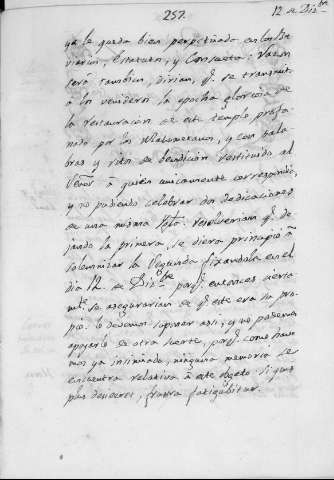 257.
12 de Diz.bre
ya le queda bien perpetuado en los Bre
viarios, Estatutos, y Consueta: razon
será tambien, dirian, q.e se transmita
à los venideros la epocha gloriosa de
la restauracion de este templo profa
nado por los Mahometanos, y con pala
bras y ritos de bendicion restituido al
Señor à quien unicamente correspondia,
y no pudiendo celebrar dos dedicaciones
de una misma Ig.ª: resolverian q.e de-
jando la primera, se diera principio à
solemnizar la segunda fixandola en el
dia 12 de Diz.bre porq.e entonces cierta
m.te se asegurarian de q.e este era su pro
pio. lo devemos suponer asi, y no podemos
apoyarlo de otra suerte, porq.e como have
mos ya insinuado, ninguna memoria se
encuentra relativa à este objeto si quid
plus desideres, frustra fatigabitur.